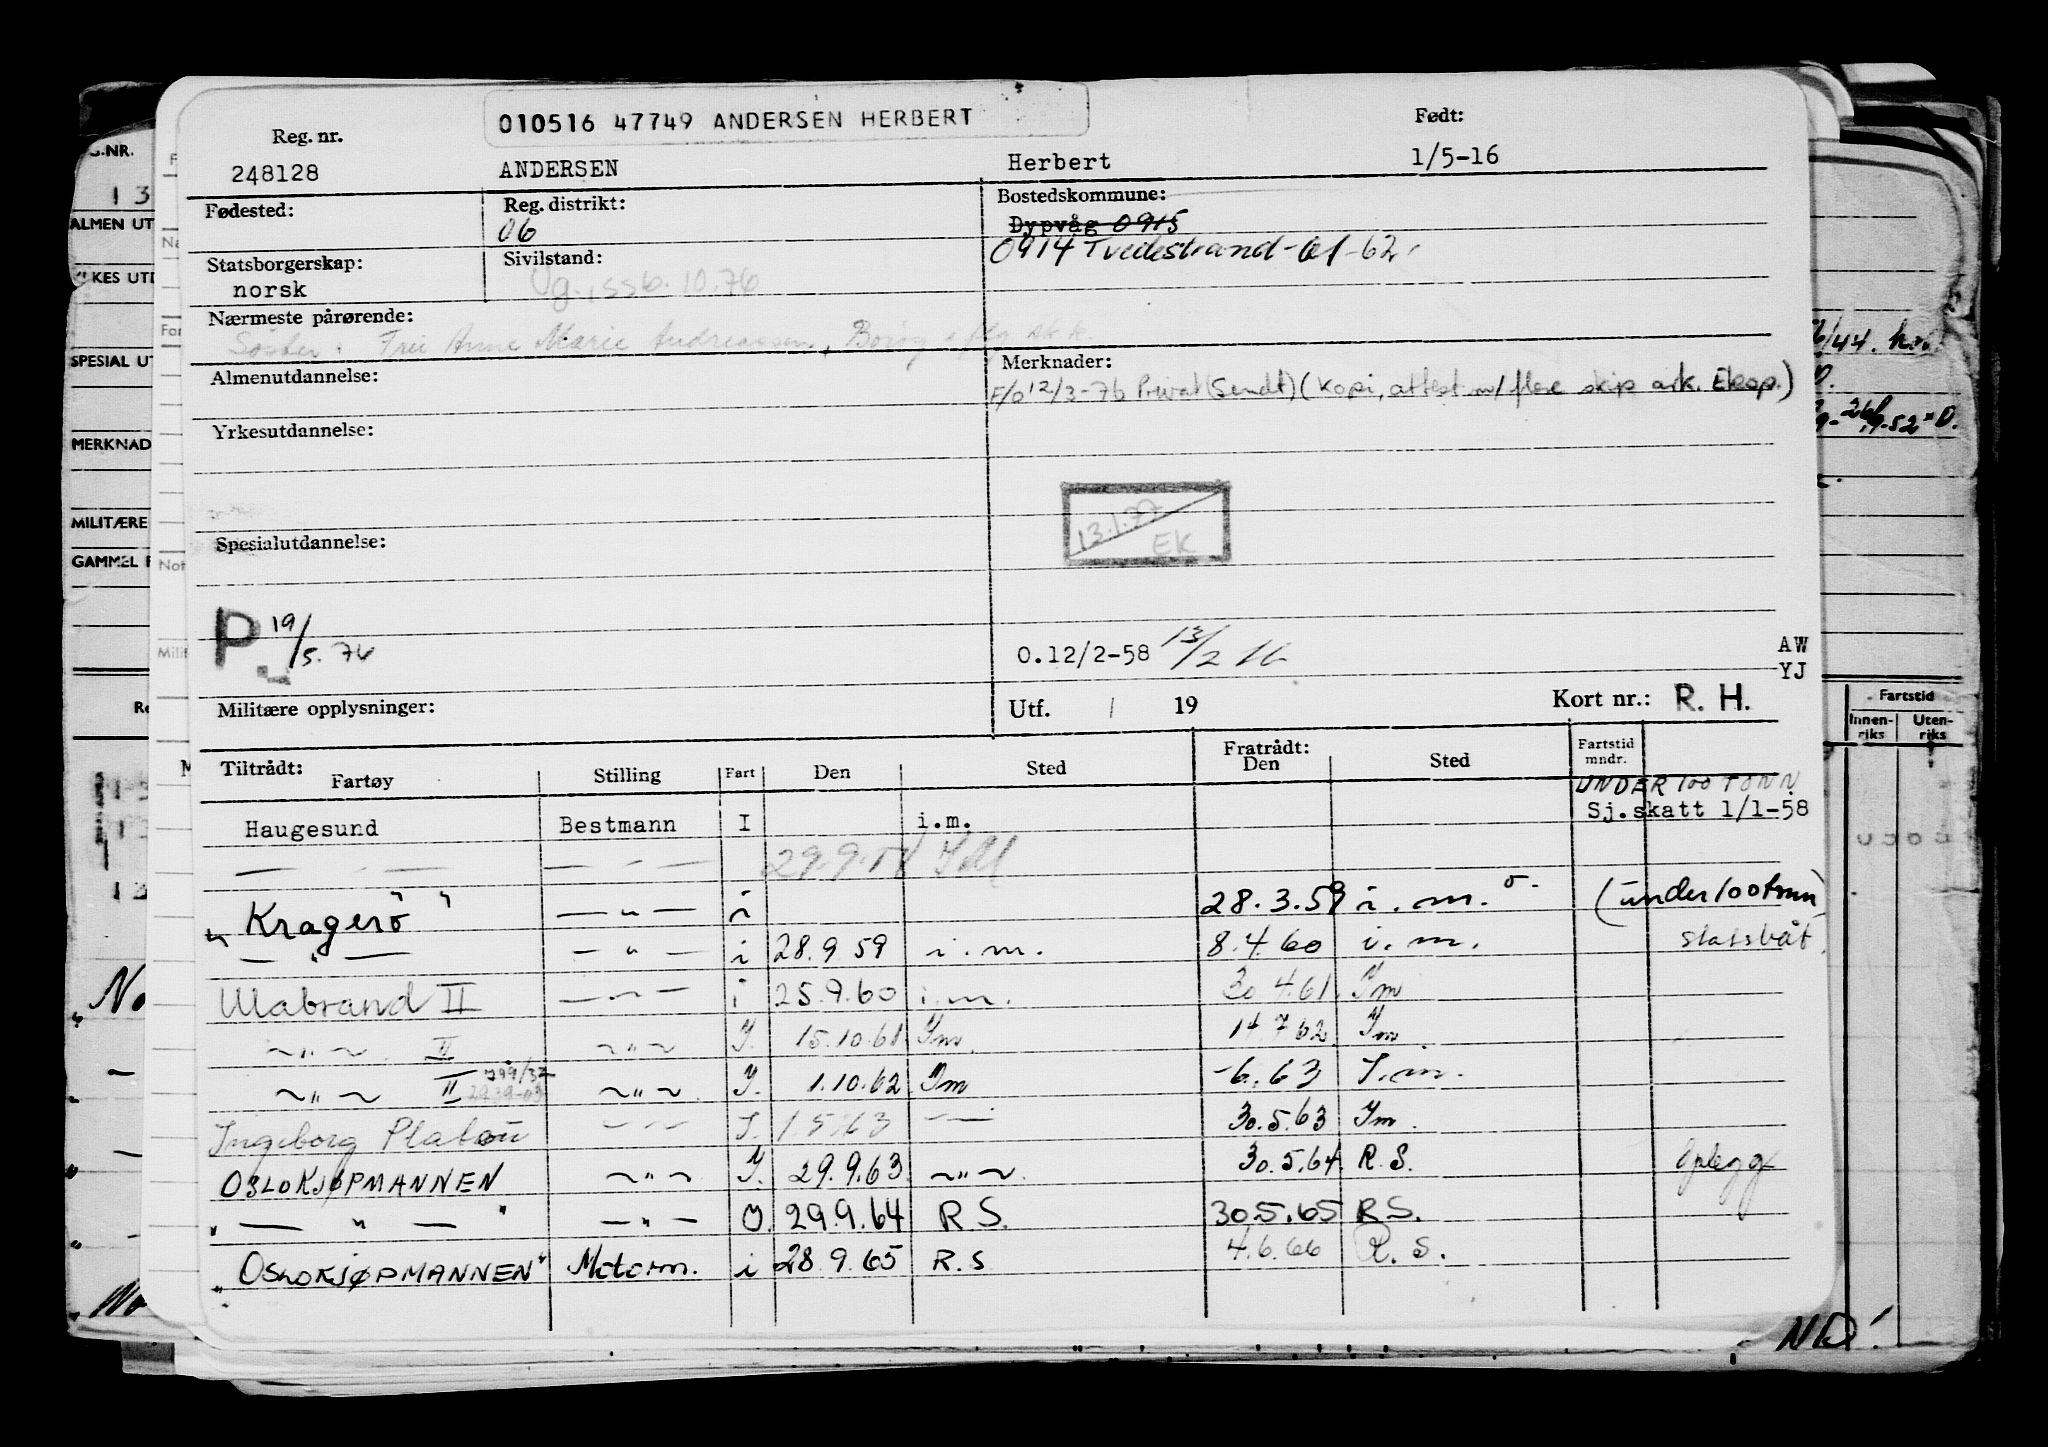 010516 47749 ANDERSEN HERBERT
Reg. nr. Født:
248128 ANDERSEN Herbert 1/5-16
Fødested: Reg. distrikt: Bostedskommune:
06 Dypvåg 0915
Statsborgerskap: Sivilstand: 0914 Tvedestrand-61-62
norsk Ug., ssb. 10.76
Nærmeste pårørende:
Søster: Anne Marie Andreassen,
Almenutdannelse: Merknader:
F/o 12/3-76 Privat (Sendt) (Kopi, attest m/ flere skip ark. Eksp.)
Yrkesutdannelse:
13.1.77
EK
Spesialutdannelse:
P. 19/5.76
O.12/2-58 13/2 AW
YJ
Militære opplysninger: Utf. / 19 Kort nr.: R. H.
Tiltrådt: Fratrådt: Fartstid
Fartøy Stilling Fart Den Sted Den Sted mndr.
UNDER 100 TONN
Haugesund Bestmann I i.m. Sj.skatt 1/1-58
— - — — - — 29.9.58
"Kragerö" — " — i 28.3.59 i.m. (under 100 tonn)
— " — — " — i 28.9 59 i.m. 8.4.60 i.m. statsbåt
Ulabrand II — " — i 25.9.60 i.m. 30 4.61. Im
~ " ~ II ~ " ~ I. 15.10.61 Im. 14.7 62 Im.
~ " ~ II ~ " ~ I. 1.10.62 Im -6.63 I.m.
Ingeborg Platou — " — I. 1 5 63 — " — 30.5.63 Im.
OSLOKJØPMANNEN ~ " ~ I. 29.9.63 ~ " ~ 30.5.64 R.S. Oplegg
" — " — " — " — 29.9.64 R S. 30.5.65 R S.
"OSLOKJØPMANNEN" Motorm. i 28.9.65 R.S 4.6.66 R.S.
G.NR.
13
ALMEN UT
YRKES UTD
SPESIAL UT
MERKNAD
MILITÆRE
GAMMEL F
Not
Milit
No
Fartstid
Innen-riks Uten-riks